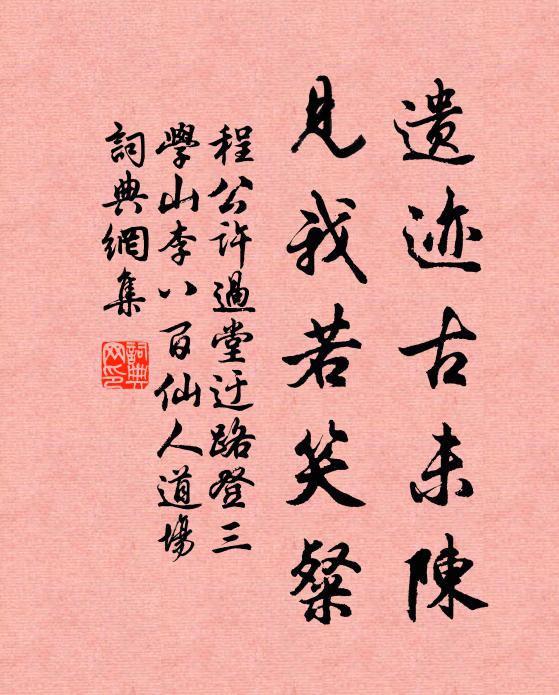 遗迹古未陳
見我若笑粲
程公许過堂迂路登三
學山李八百仙人道場
詞典網集
詞典网印